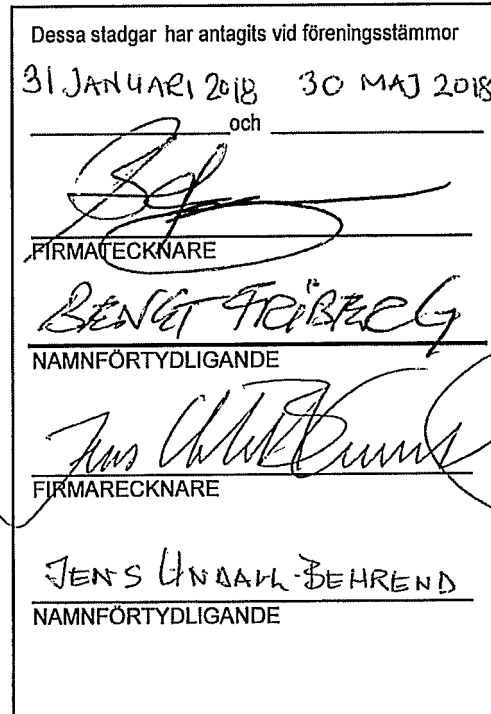 Dessa stadgar har antagits vid föreningsstämmor
31 JANUARI 2018 30 MAJ 2018
och
FIRMATECKNARE
BENGT FRIBERG
NAMNFÖRTYDLIGANDE
Jens
FIRMARECKNARE
JENS UNDALL-BEHREND
NAMNFÖRTYDLIGANDE